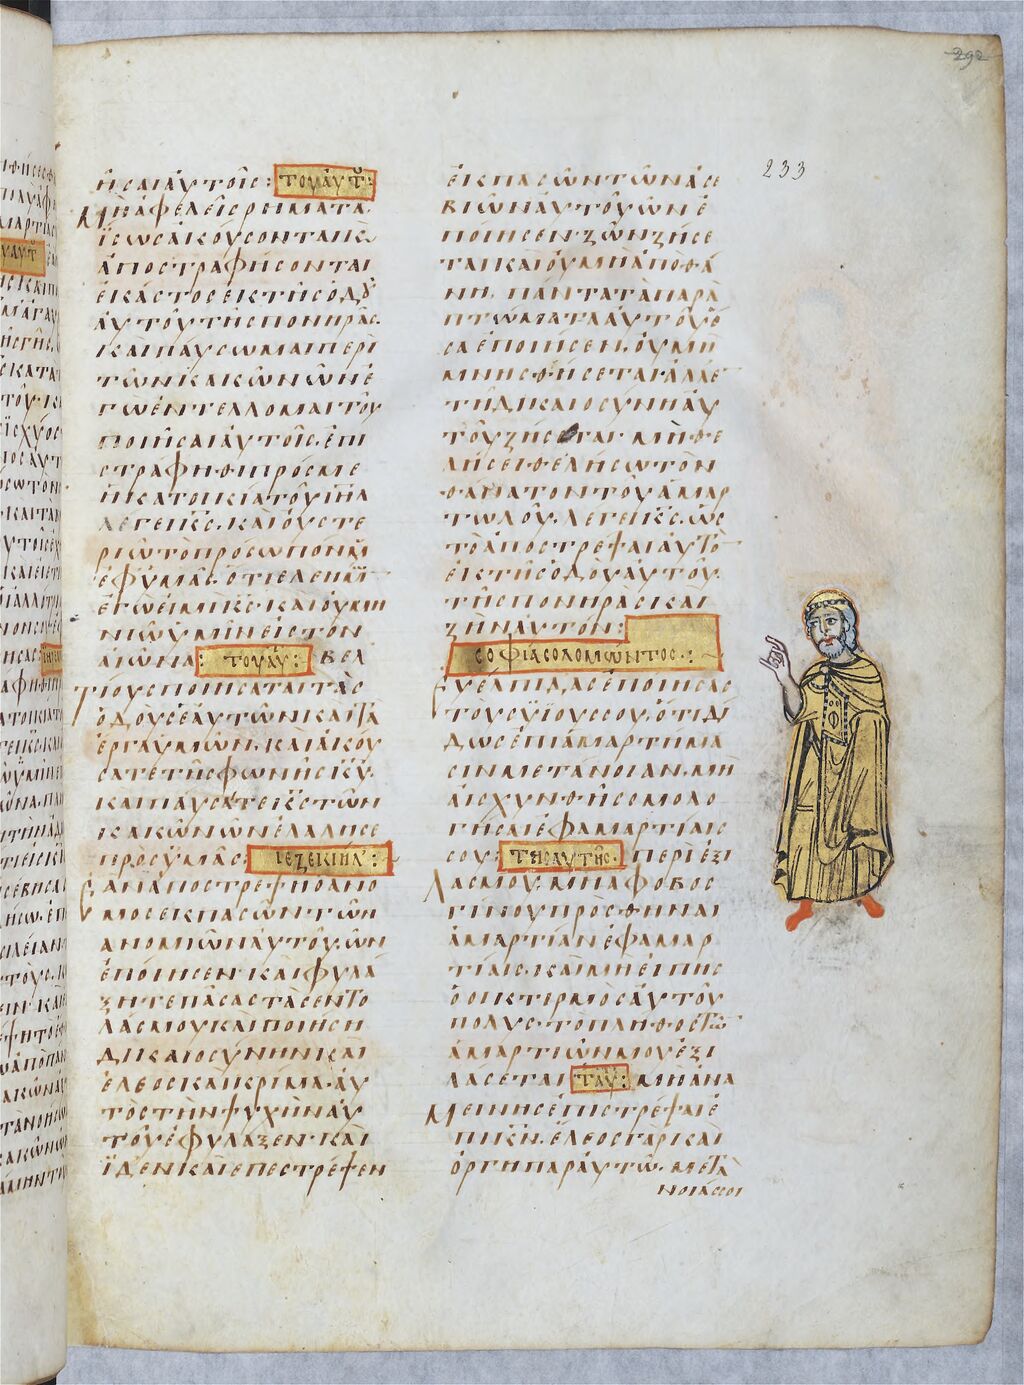 292
233
ῆσαι αὐτοῖς: τοῦ αὐτοῦ:
Μὴ ἀφέλεις ρείματα.
ἴσως ἀκούσονται κ(αὶ)
ἀποστραφήσονται
ἕκαστος ἐκ τῆς ὁδοῦ
αὐτοῦ τῆς πονηρᾶς.
καὶ παύσωμαι περὶ
τῶν κακῶν ὧν ἐ
γὼ ἐντέλλομαι τοῦ
ποιῆσαι αὐτοῖς. ἐπι
στράφηθι πρός με
ἡ κατοικία τοῦ ιηλ
λέγει κς. καὶ οὐ στε
ριῶ τὸ πρόσωπόν μου
ἐφ' ὑμᾶς. ὅτι ἐλεήμων
ἐγώ εἰμι κς. καὶ οὐ μη
νιῶ ὑμῖν εἰς τὸν
αἰῶνα: τοῦ αὐ: βελ
τίους ποιήσατε τὰς
ὁδοὺς ἑαυτῶν καὶ τὰ
ἔργα ὑμῶν. καὶ ἀκού
σατε τῆς φωνῆς κυ.
καὶ παύσατε κς τῶν
κακῶν ὧν ἐλάλησε
πρὸς ὑμᾶς: ἰεζεκιήλ:
Ἐὰν ἀποστρέψῃ ὁ ἄνο
μος ἐκ πασῶν τῶν
ἀνομιῶν αὐτοῦ. ὧν
ἐποίησεν καὶ φυλά
ξητε πάσας τὰς ἐντο
λάς μου καὶ ποιήσῃ
δικαιοσύνην καὶ
ἔλεος καὶ κρίμα. αὐ
τὸς τὴν ψυχὴν αὐ
τοῦ ἐφύλαξεν. καὶ
ἴδεν καὶ ἐπέστρεψεν
ἐκ πασῶν τῶν ἀσε
βιῶν αὐτοῦ ὧν ἐ
ποίησεν ζωῇ ζήσε
ται καὶ οὐ μὴ ἀποθά
νῃ. πάντα τὰ παρα
πτώματα αὐτοῦ ὅ
σα ἐποίησεν. οὐ μὴ
μνησθήσεται ἀλλ' ἐ
τῇ δικαιοσύνῃ αὐ
τοῦ ζήσεται. μὴ θε
λήσει θελήσω τὸν
θάνατον τοῦ ἁμαρ
τωλοῦ. λέγει κς. ὡς
τὸ ἀποστρέψαι αὐτὸ
ἐκ τῆς ὁδοῦ αὐτοῦ.
τῆς πονηρᾶς καὶ
ζῆν αὐτόν:
σοφία σολομῶντος:
Εὔελπιδας ἐποίησας
τοὺς υἱούς σου. ὅτι δί
δως ἐπὶ ἁμαρτήμα
σιν μετάνοιαν. μὴ
αἰσχυνθῇς ὁμολο
γῆσαι ἐφ' ἁμαρτίαις
σου: τῆς αὐτῆς: περὶ ἐξι
λασμοῦ. μὴ ἄφοβος
γίνου προσθῆναι
ἁμαρτίαν ἐφ' ἁμαρ
τίαις. καὶ μὴ εἴπῃς
ὁ οἰκτιρμὸς αὐτοῦ
πολύς. τὸ πλῆθος τῶ
ἁμαρτιῶν μου ἐξι
λάσεται: τ αὐ: μὴ ἀνα
μείνῃς ἐπιστρέψαι ἐ
πὶ κν. ἔλεος γὰρ καὶ
ὀργὴ παρ' αὐτῶ. μετα
νοίας σοι